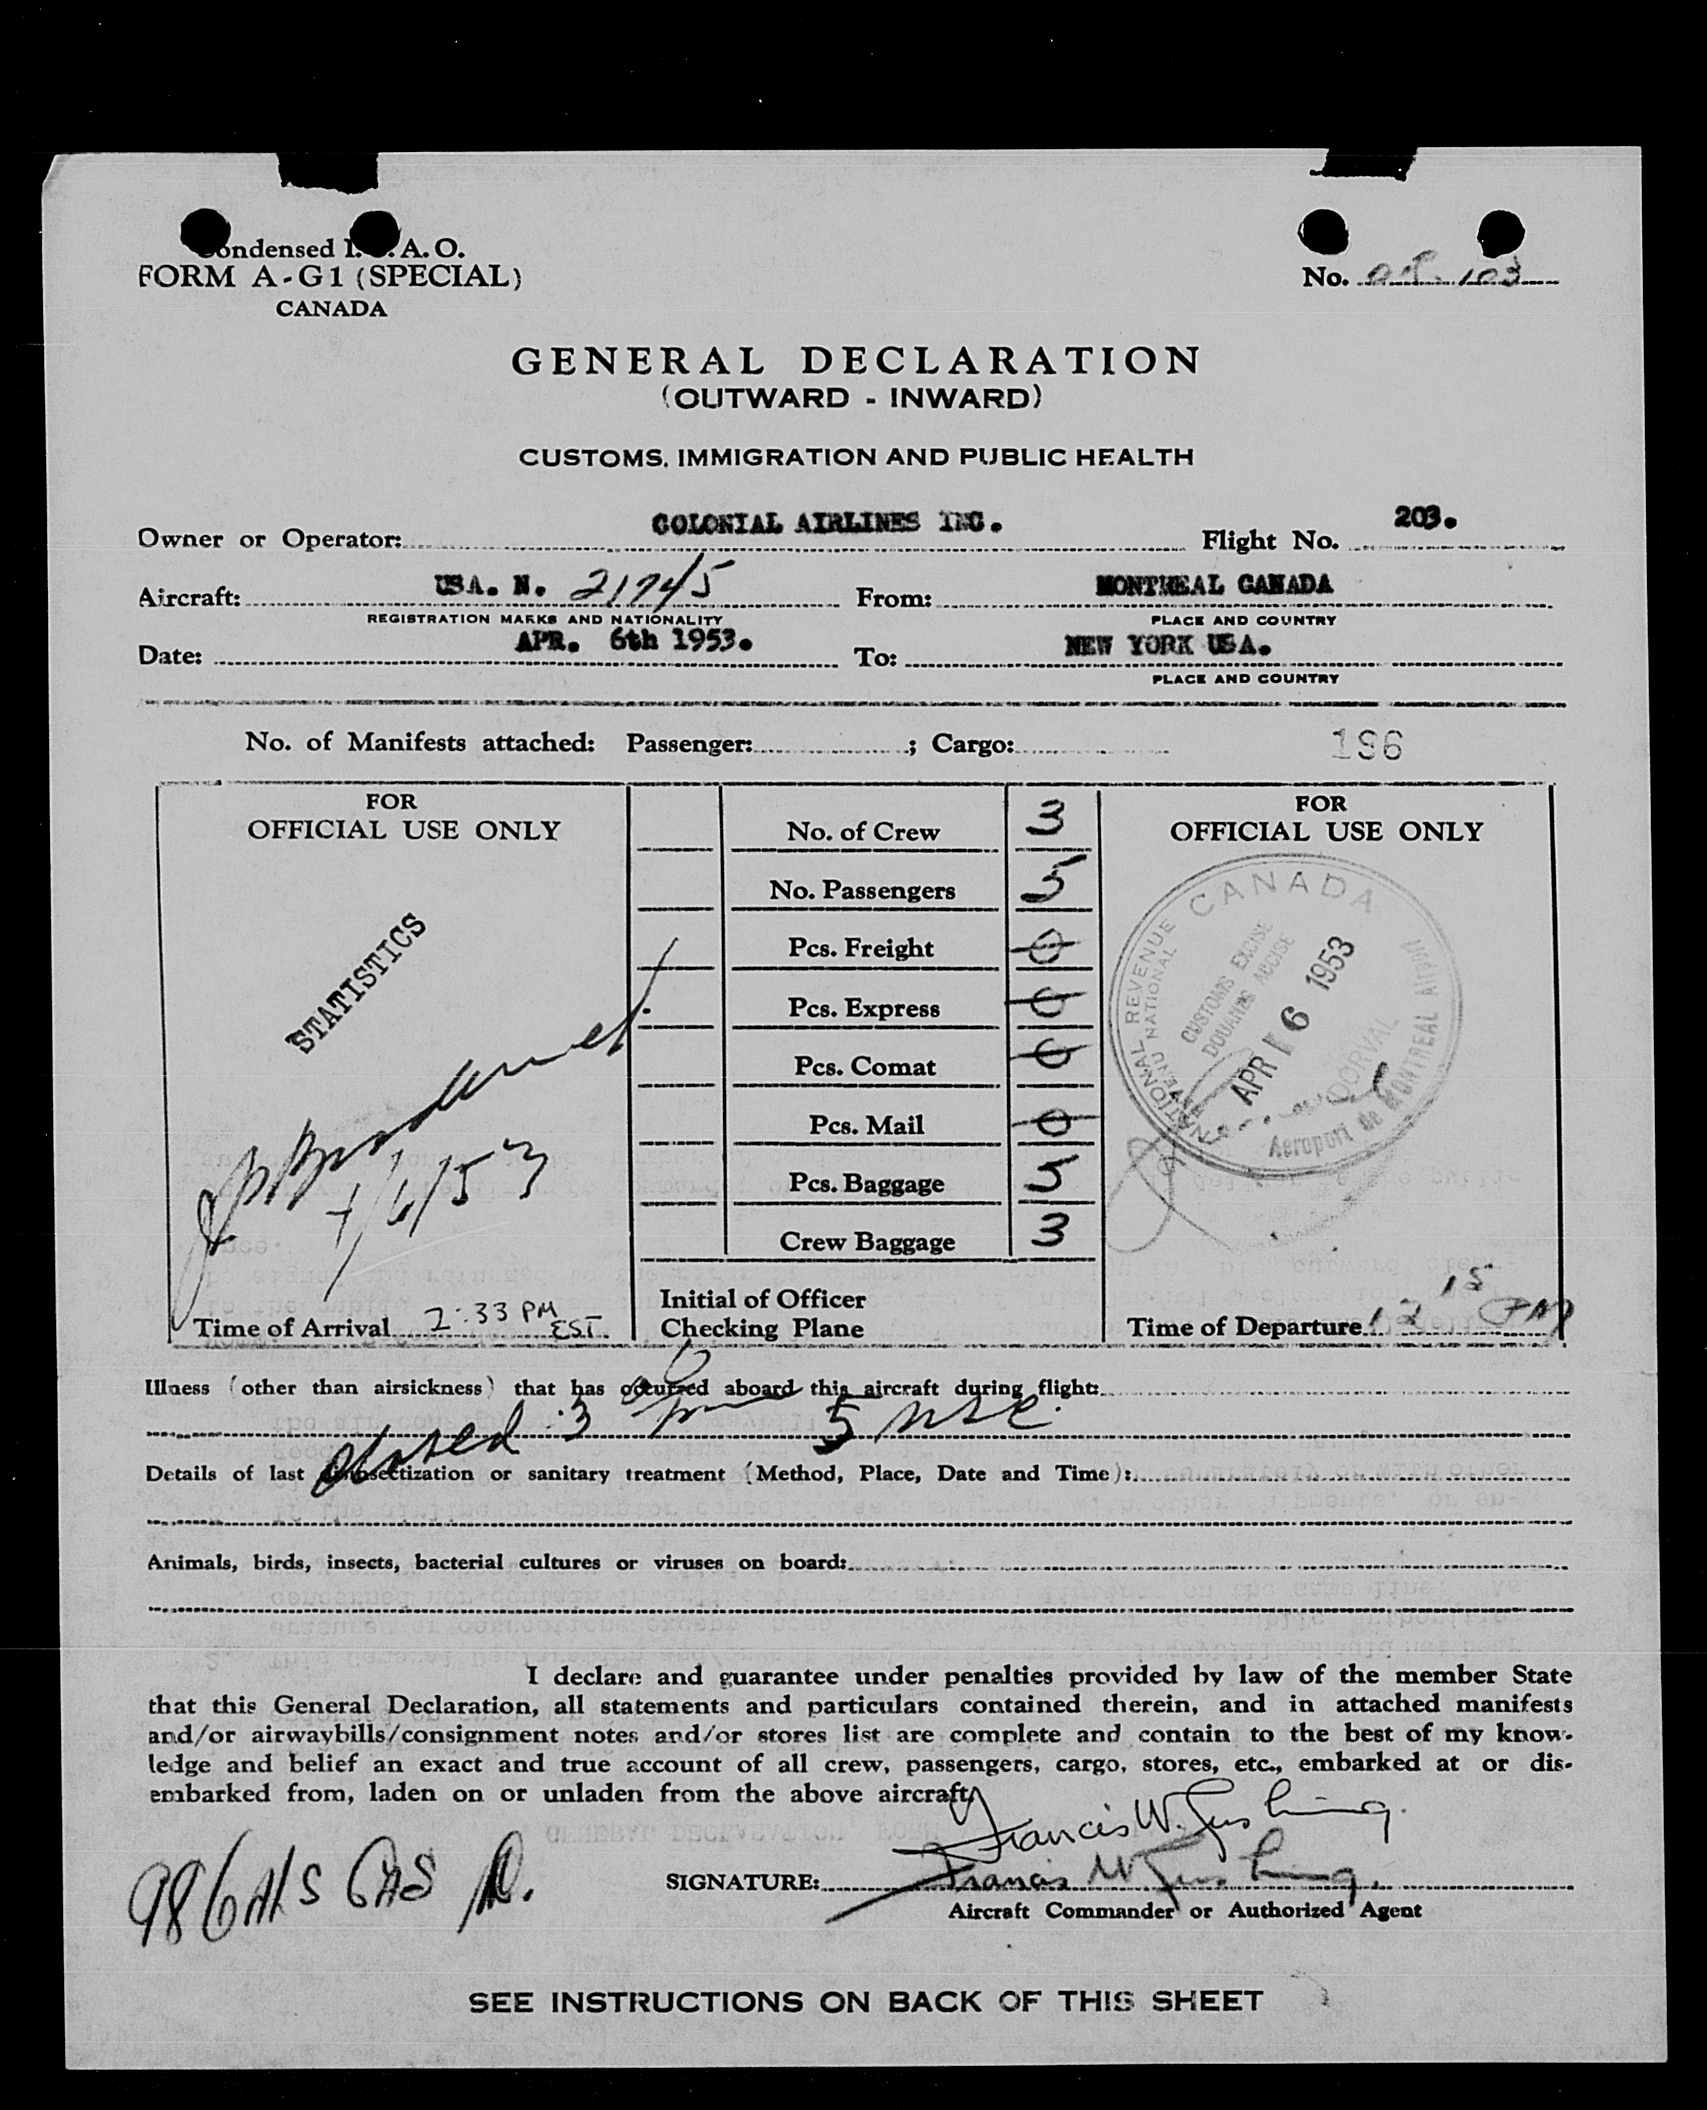 Condensed I.C.A.O.
FORM A-G1 (SPECIAL)
CANADA
No. 103
GENERAL DECLARATION
(OUTWARD - INWARD)
CUSTOMS, IMMIGRATION AND PUBLIC HEALTH
Owner or Operator: COLONIAL AIRLINES INC. Flight No. 203.
Aircraft: USA. N. 21745 From: MONTREAL CANADA
REGISTRATION MARKS AND NATIONALITY PLACE AND COUNTRY
Date: APR. 6th 1953. To: NEW YORK USA.
PLACE AND COUNTRY
No. of Manifests attached: Passenger: ; Cargo: 196
FOR
OFFICIAL USE ONLY
STATISTICS
4/6/53
Time of Arrival 2:33 PM EST.
No. of Crew 3
No. Passengers 5
Pcs. Freight 0
Pcs. Express 0
Pcs. Comat 0
Pcs. Mail 0
Pcs. Baggage 5
Crew Baggage 3
Initial of Officer
Checking Plane
FOR
OFFICIAL USE ONLY
CANADA
NATIONAL REVENUE
REVENU NATIONAL
CUSTOMS EXCISE
DOUANES ACCISE
APR 6 1953
DORVAL
Aeroport de MONTREAL Airport
Time of Departure 12 15 PM
Illness (other than airsickness) that has occurred aboard this aircraft during flight:
3 5 USC
Details of last disinsectization or sanitary treatment (Method, Place, Date and Time):
Animals, birds, insects, bacterial cultures or viruses on board:
I declare and guarantee under penalties provided by law of the member State
that this General Declaration, all statements and particulars contained therein, and in attached manifests
and/or airwaybills/consignment notes and/or stores list are complete and contain to the best of my know-
ledge and belief an exact and true account of all crew, passengers, cargo, stores, etc., embarked at or dis-
embarked from, laden on or unladen from the above aircraft.
Francis W. Cushing.
986 GALS GAS
SIGNATURE: Francis W Cushing.
Aircraft Commander or Authorized Agent
SEE INSTRUCTIONS ON BACK OF THIS SHEET